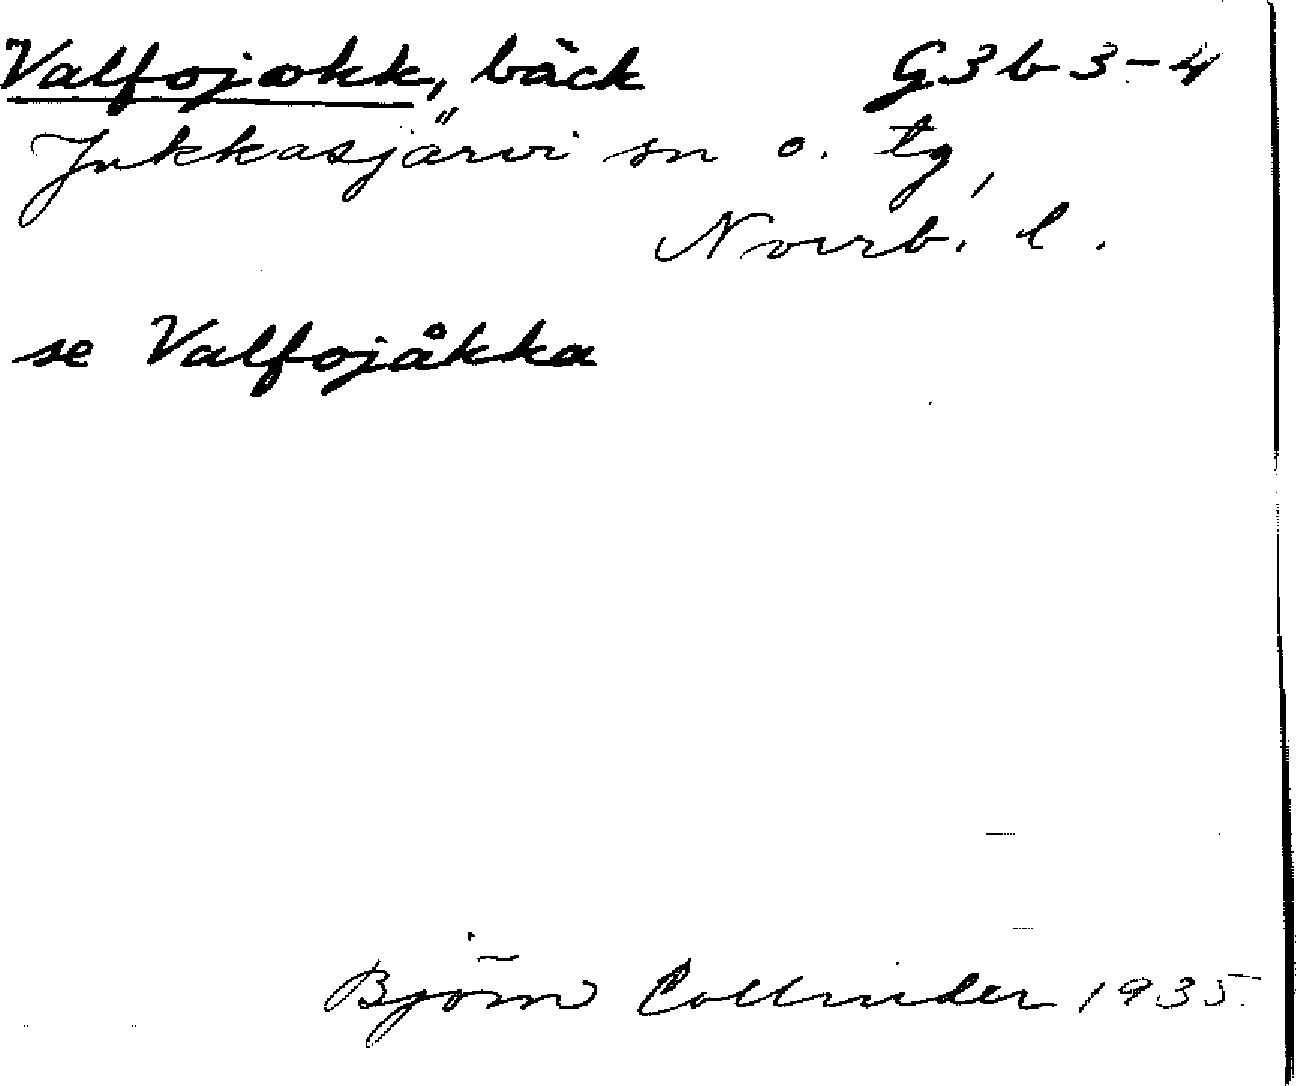 Valfojokk, bäck G3b3-4
Jukkasjärvi sn o. tg,
Norrb. l.
se Valfojåkka
Björn Collinder 1935.